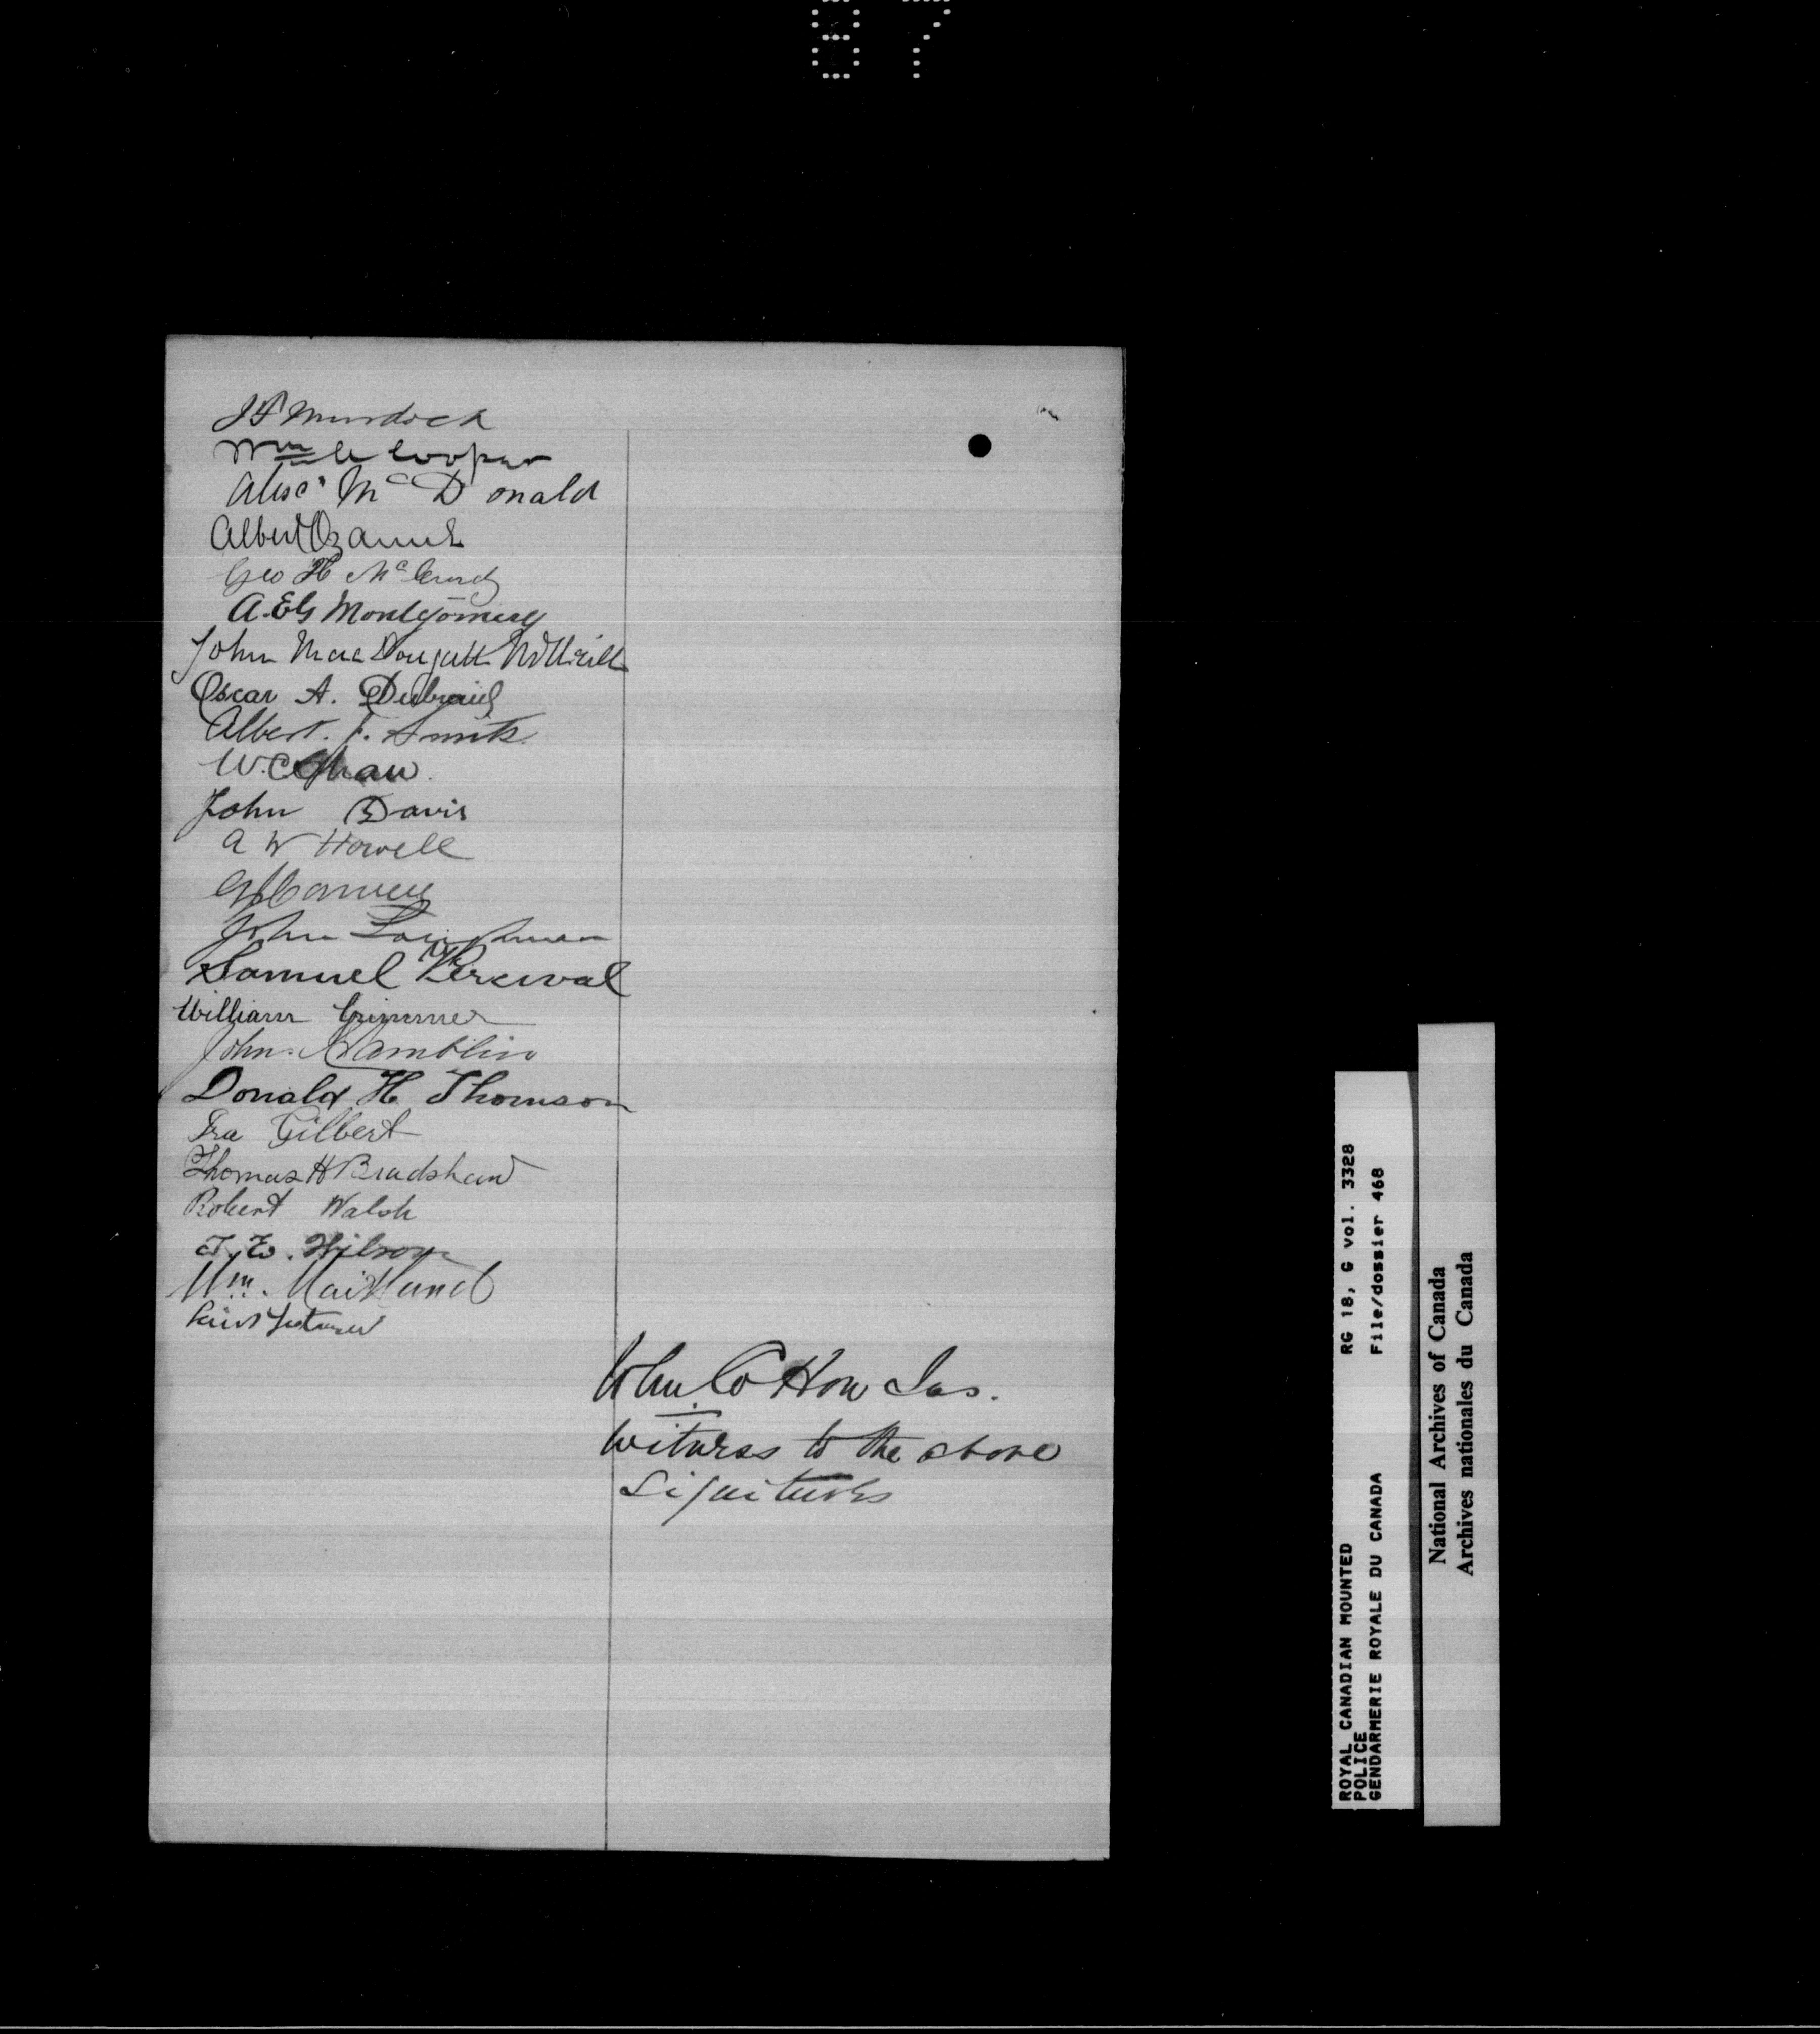 87
J F Murdock
Wm C Cooper
Alex. McDonald
Albert Ozanne
Geo H McCurdy
A.E.G Montgomery
John MacDougall
Oscar A.
Albert. F. Smith
W.C Shaw.
John Davis
A W Howell
John
Samuel Percival
William Grimmer
John. Hamblin
Donald H Thomson
Ira Gilbert
Thomas H Bradshaw
Robert Walsh
T. E. Wilson
Wm. Maitland
John Cotton Ins.
Witness to the above
Signitures
ROYAL CANADIAN MOUNTED RG 18, G vol. 3328
POLICE
GENDARMERIE ROYALE DU CANADA File/dossier 468
National Archives of Canada
Archives nationales du Canada